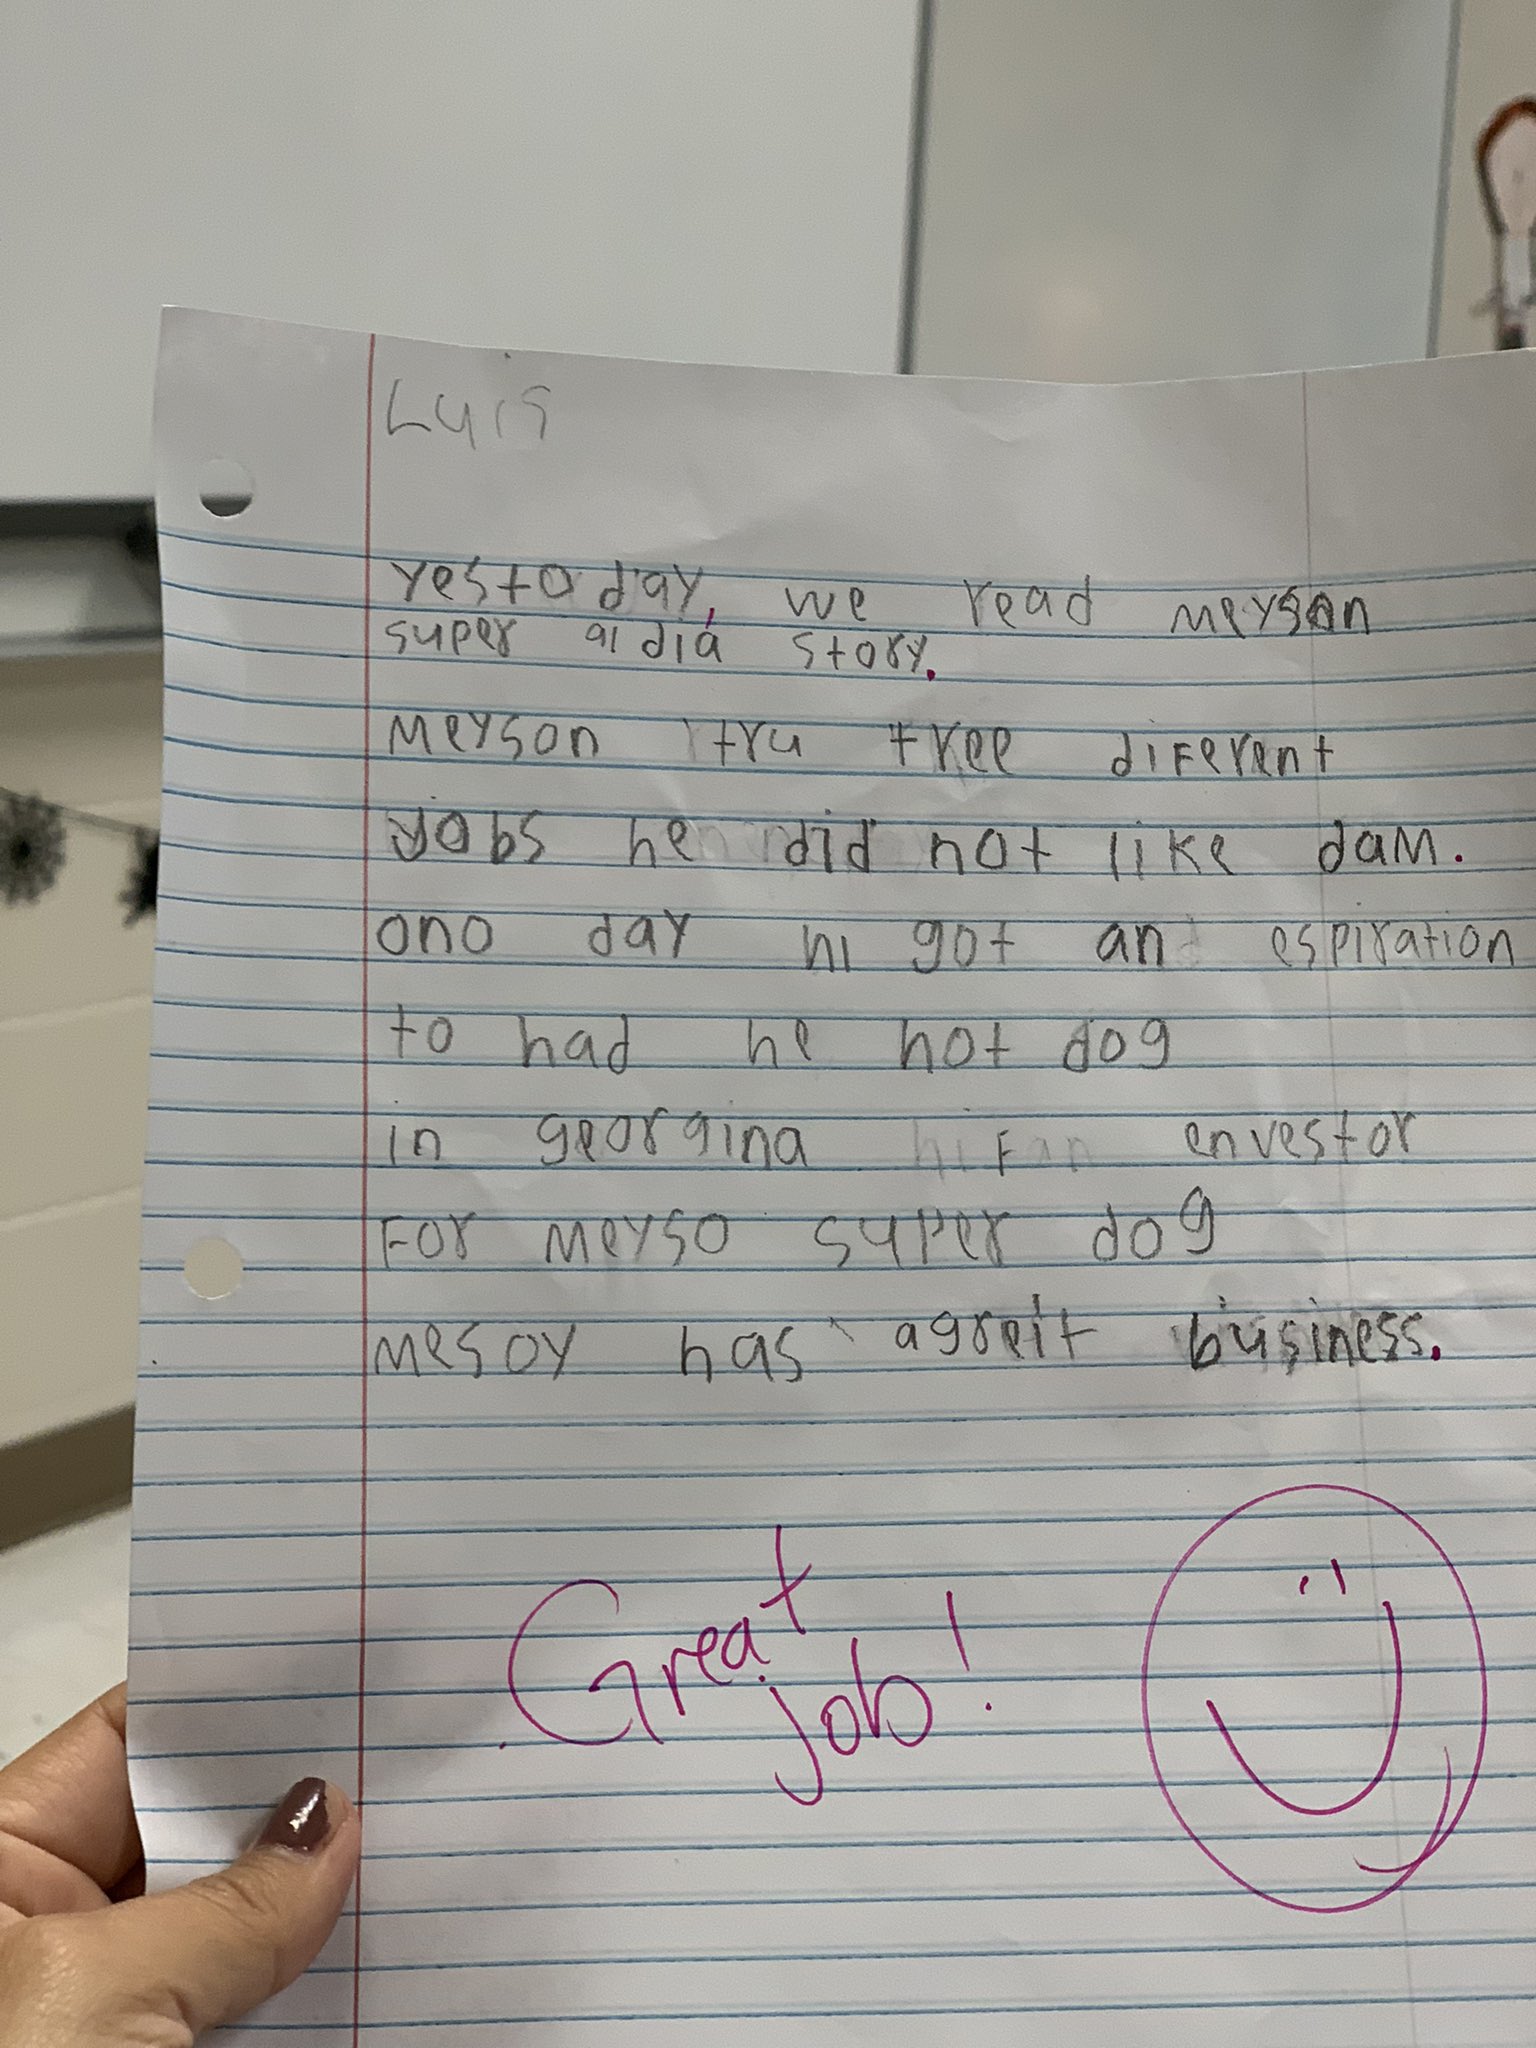 Luis
Yestoday, we read meyson
super aidia story.
Meyson tru tree diferent
Jobs he did not like dam.
ono day hi got an espiration
to had he hot dog
in georgina hi Fan envestor
For meyso super dog
mesoy has agreit business.
Great
job!